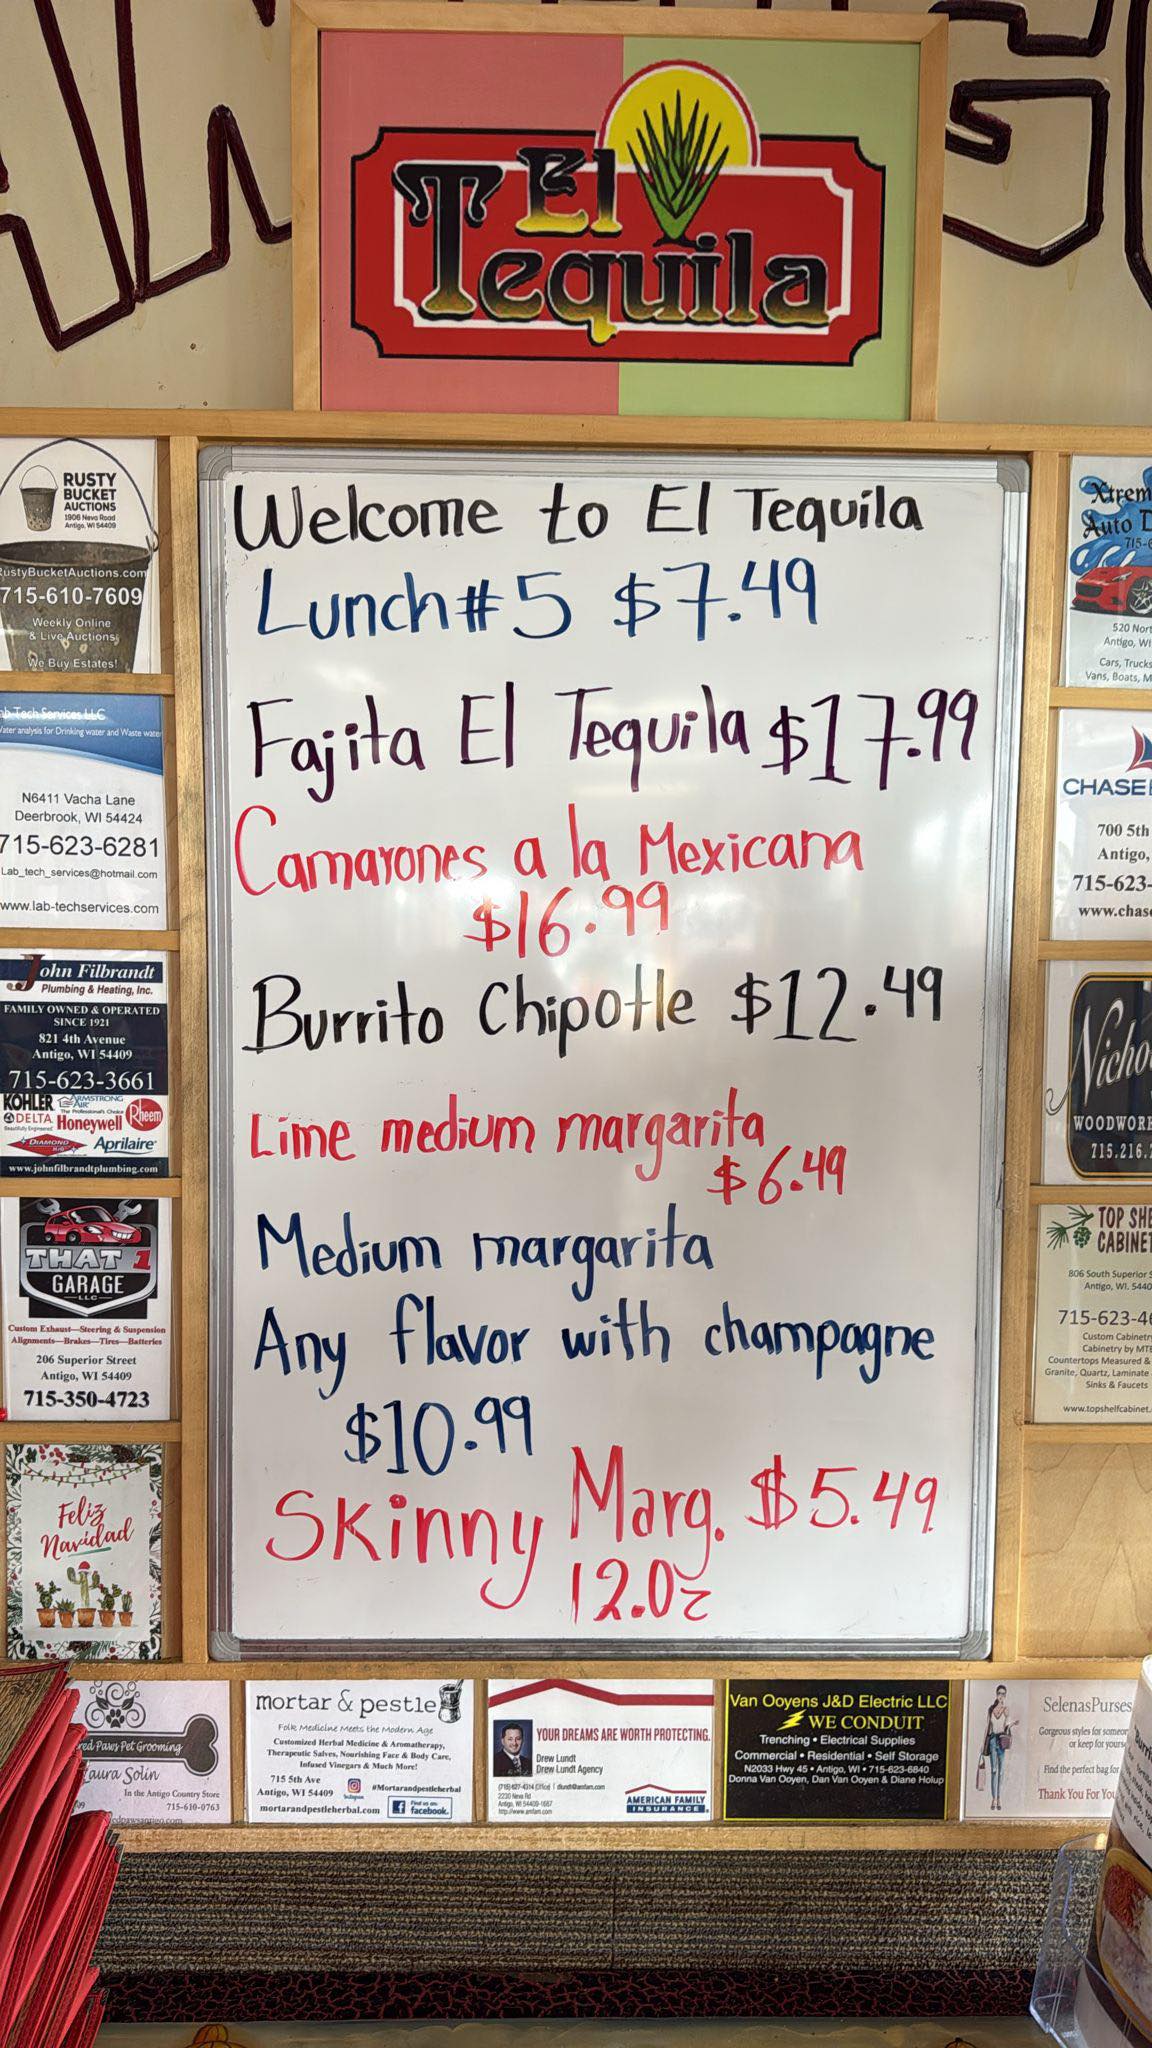 El
Tequila
Welcome to El Tequila
Lunch #5 $7.49
Fajita El Tequila $17.99
Camarones a la Mexicana
$16.99
Burrito Chipotle $12.49
Lime medium margarita
$6.49
Medium margarita
Any flavor with champagne
$10.99
Skinny Marg. $5.49
12.oz
RUSTY
BUCKET
AUCTIONS
1906 Neva Road
Antigo, WI 54409
RustyBucketAuctions.com
715-610-7609
Weekly Online
& Live Auctions
We Buy Estates!
Tech Services LLC
Water analysis for Drinking water and Waste water
N6411 Vacha Lane
Deerbrook, WI 54424
715-623-6281
Lab_tech_services@hotmail.com
www.lab-techservices.com
John Filbrandt
Plumbing & Heating, Inc.
FAMILY OWNED & OPERATED
SINCE 1921
821 4th Avenue
Antigo, WI 54409
715-623-3661
KOHLER ARMSTRONG AIR
DELTA Honeywell Rheem
DIAMOND Aprilaire
www.johnfilbrandtplumbing.com
THAT 1
GARAGE
LLC
Custom Exhaust—Steering & Suspension
Alignments—Brakes—Tires—Batteries
206 Superior Street
Antigo, WI 54409
715-350-4723
Feliz
Navidad
Xtrem
Auto D
715-6
520 Nort
Antigo, WI
Cars, Trucks
Vans, Boats, M
CHASE
700 5th
Antigo,
715-623-
www.chas
Nicho
WOODWOR
715.216.
TOP SHE
CABINET
806 South Superior S
Antigo, WI. 5440
715-623-46
Custom Cabinetr
Cabinetry by MTE
Countertops Measured &
Granite, Quartz, Laminate
Sinks & Faucets
www.topshelfcabinet.
red Paws Pet Grooming
Laura Solin
In the Antigo Country Store
715-610-0763
mortar & pestle
Folk Medicine Meets the Modern Age
Customized Herbal Medicine & Aromatherapy,
Therapeutic Salves, Nourishing Face & Body Care,
Infused Vinegars & Much More!
715 5th Ave
Antigo, WI 54409
#Mortarandpestleherbal
mortarandpestleherbal.com
Find us on:
facebook.
YOUR DREAMS ARE WORTH PROTECTING.
Drew Lundt
Drew Lundt Agency
2230 Neva Rd
http://www.amfam.com
AMERICAN FAMILY
INSURANCE
Van Ooyens J&D Electric LLC
WE CONDUIT
Trenching • Electrical Supplies
Commercial • Residential • Self Storage
N2033 Hwy 45 • Antigo, WI • 715-623-6840
Donna Van Ooyen, Dan Van Ooyen & Diane Holup
SelenasPurses
Gorgeous styles for someon
or keep for yourse
Find the perfect bag for
Thank You For You